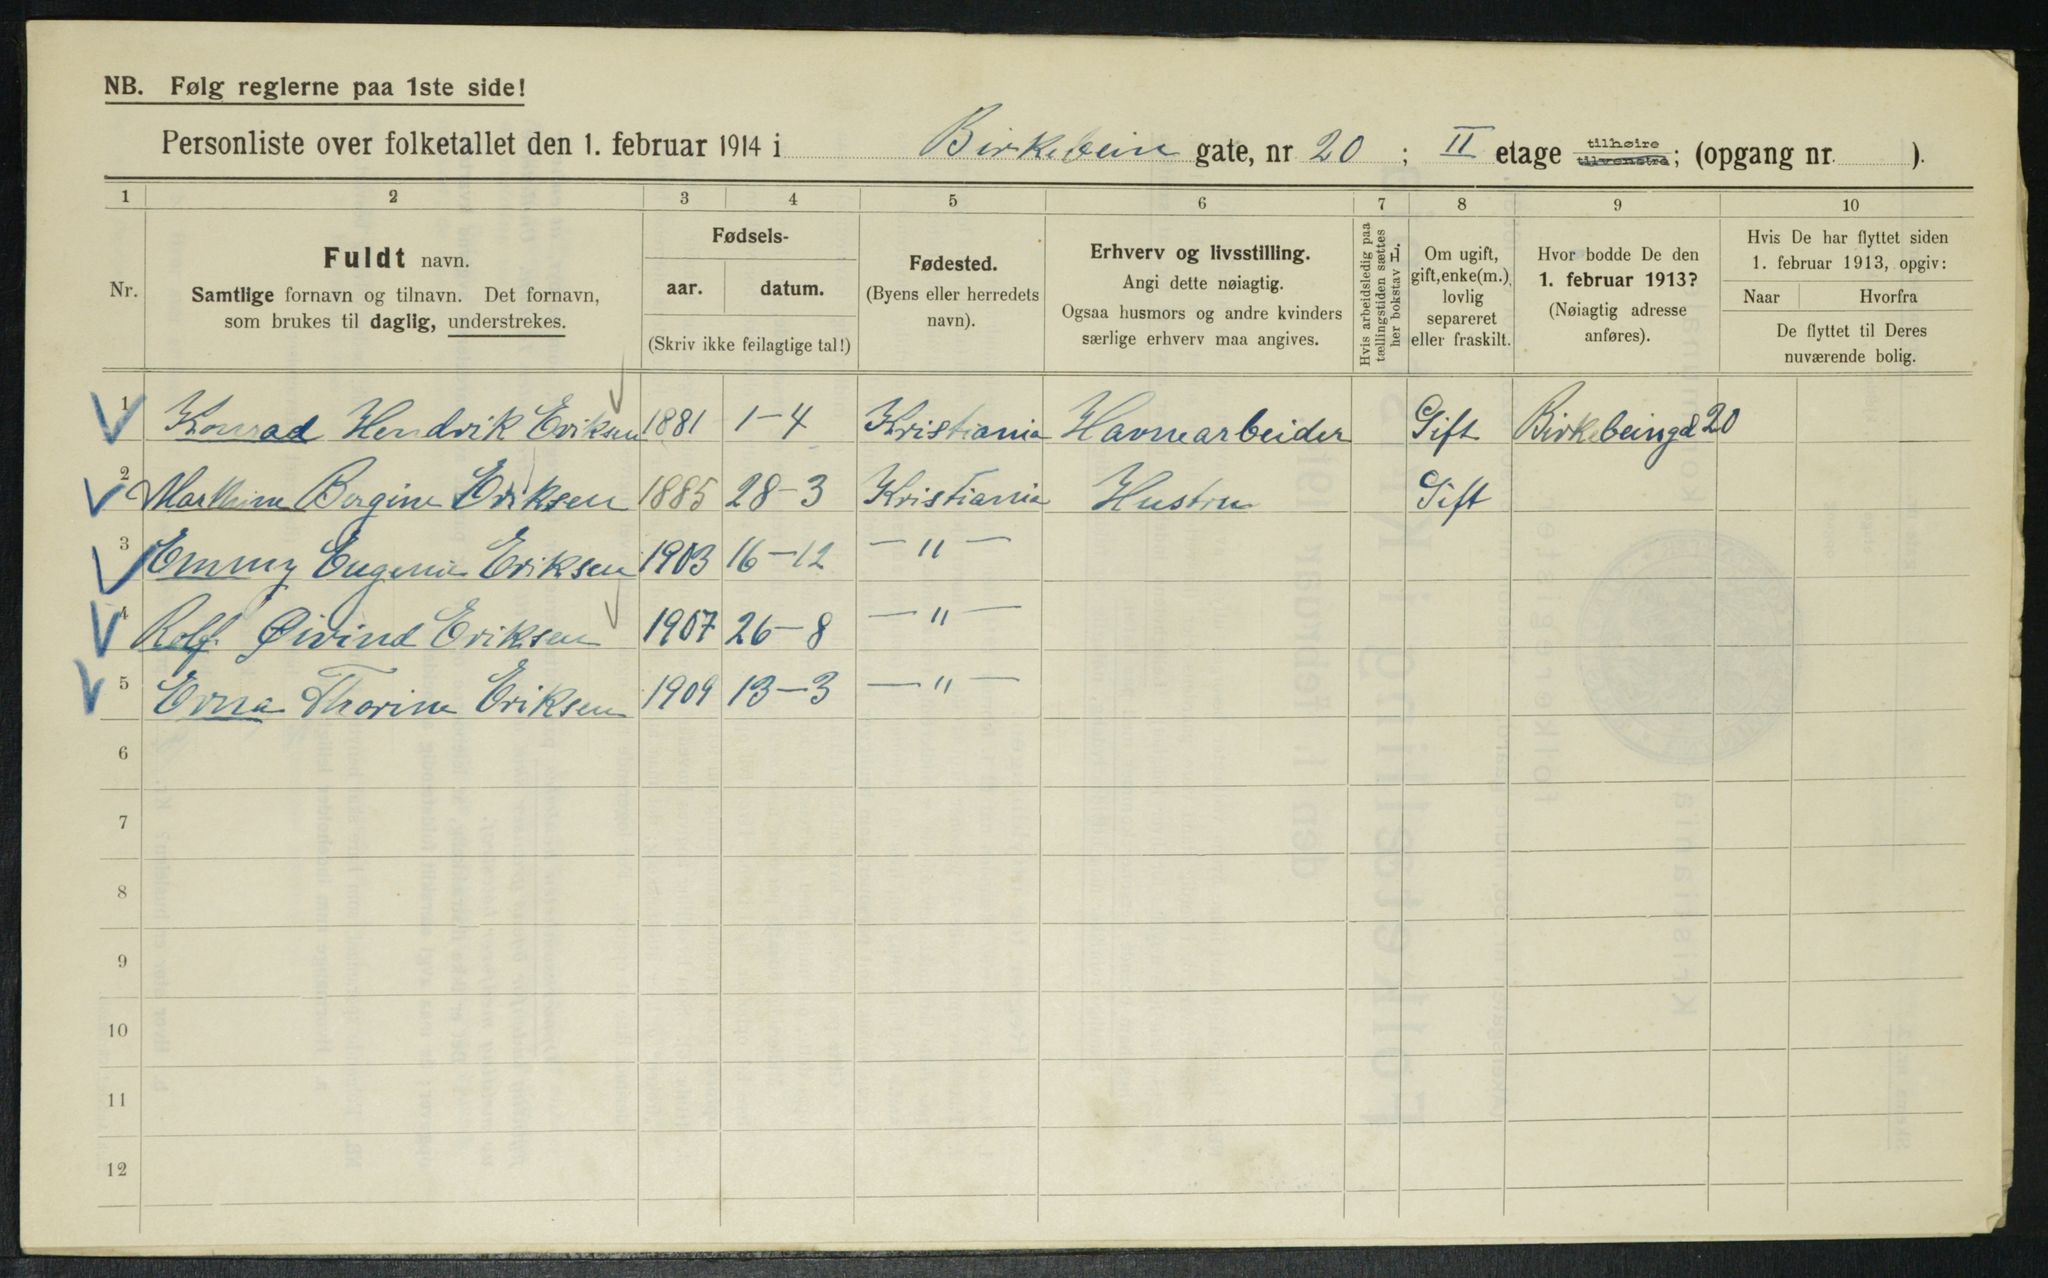 NB. Følg reglerne paa 1ste side!
Personliste over folketallet den 1. februar 1914 i Birkebein gate, nr 20 ; II etage tilhøire tilvenstre; (opgang nr ).
1 2 3 4 5 6 7 8 9 10
Nr.
Fuldt navn.
Samtlige fornavn og tilnavn. Det fornavn,
som brukes til daglig, understrekes.
Fødsels-
aar. datum.
(Skriv ikke feilagtige tal!)
Fødested.
(Byens eller herredets
navn).
Erhverv og livsstilling.
Angi dette nøiagtig.
Ogsaa husmors og andre kvinders
særlige erhverv maa angives.
Hvis arbeidsledig paa
tællingstiden sættes
her bokstav L.
Om ugift,
gift, enke(m.),
lovlig
separeret
eller fraskilt.
Hvor bodde De den
1. februar 1913?
(Nøiagtig adresse
anføres).
Hvis De har flyttet siden
1. februar 1913, opgiv:
Naar Hvorfra
De flyttet til Deres
nuværende bolig.
1 Konrad Hendrik Eriksen 1881 1-4 Kristiania Havnearbeider Gift Birkebeingd 20
2 Marthine Bergine Eriksen 1885 28-3 Kristiania Hustru Gift
3 Emmy Eugenie Eriksen 1903 16-12 — " —
4 Rolf Øivind Eriksen 1907 26-8 — " —
5 Erna Thorine Eriksen 1909 13-3 — " —
6
7
8
9
10
11
12